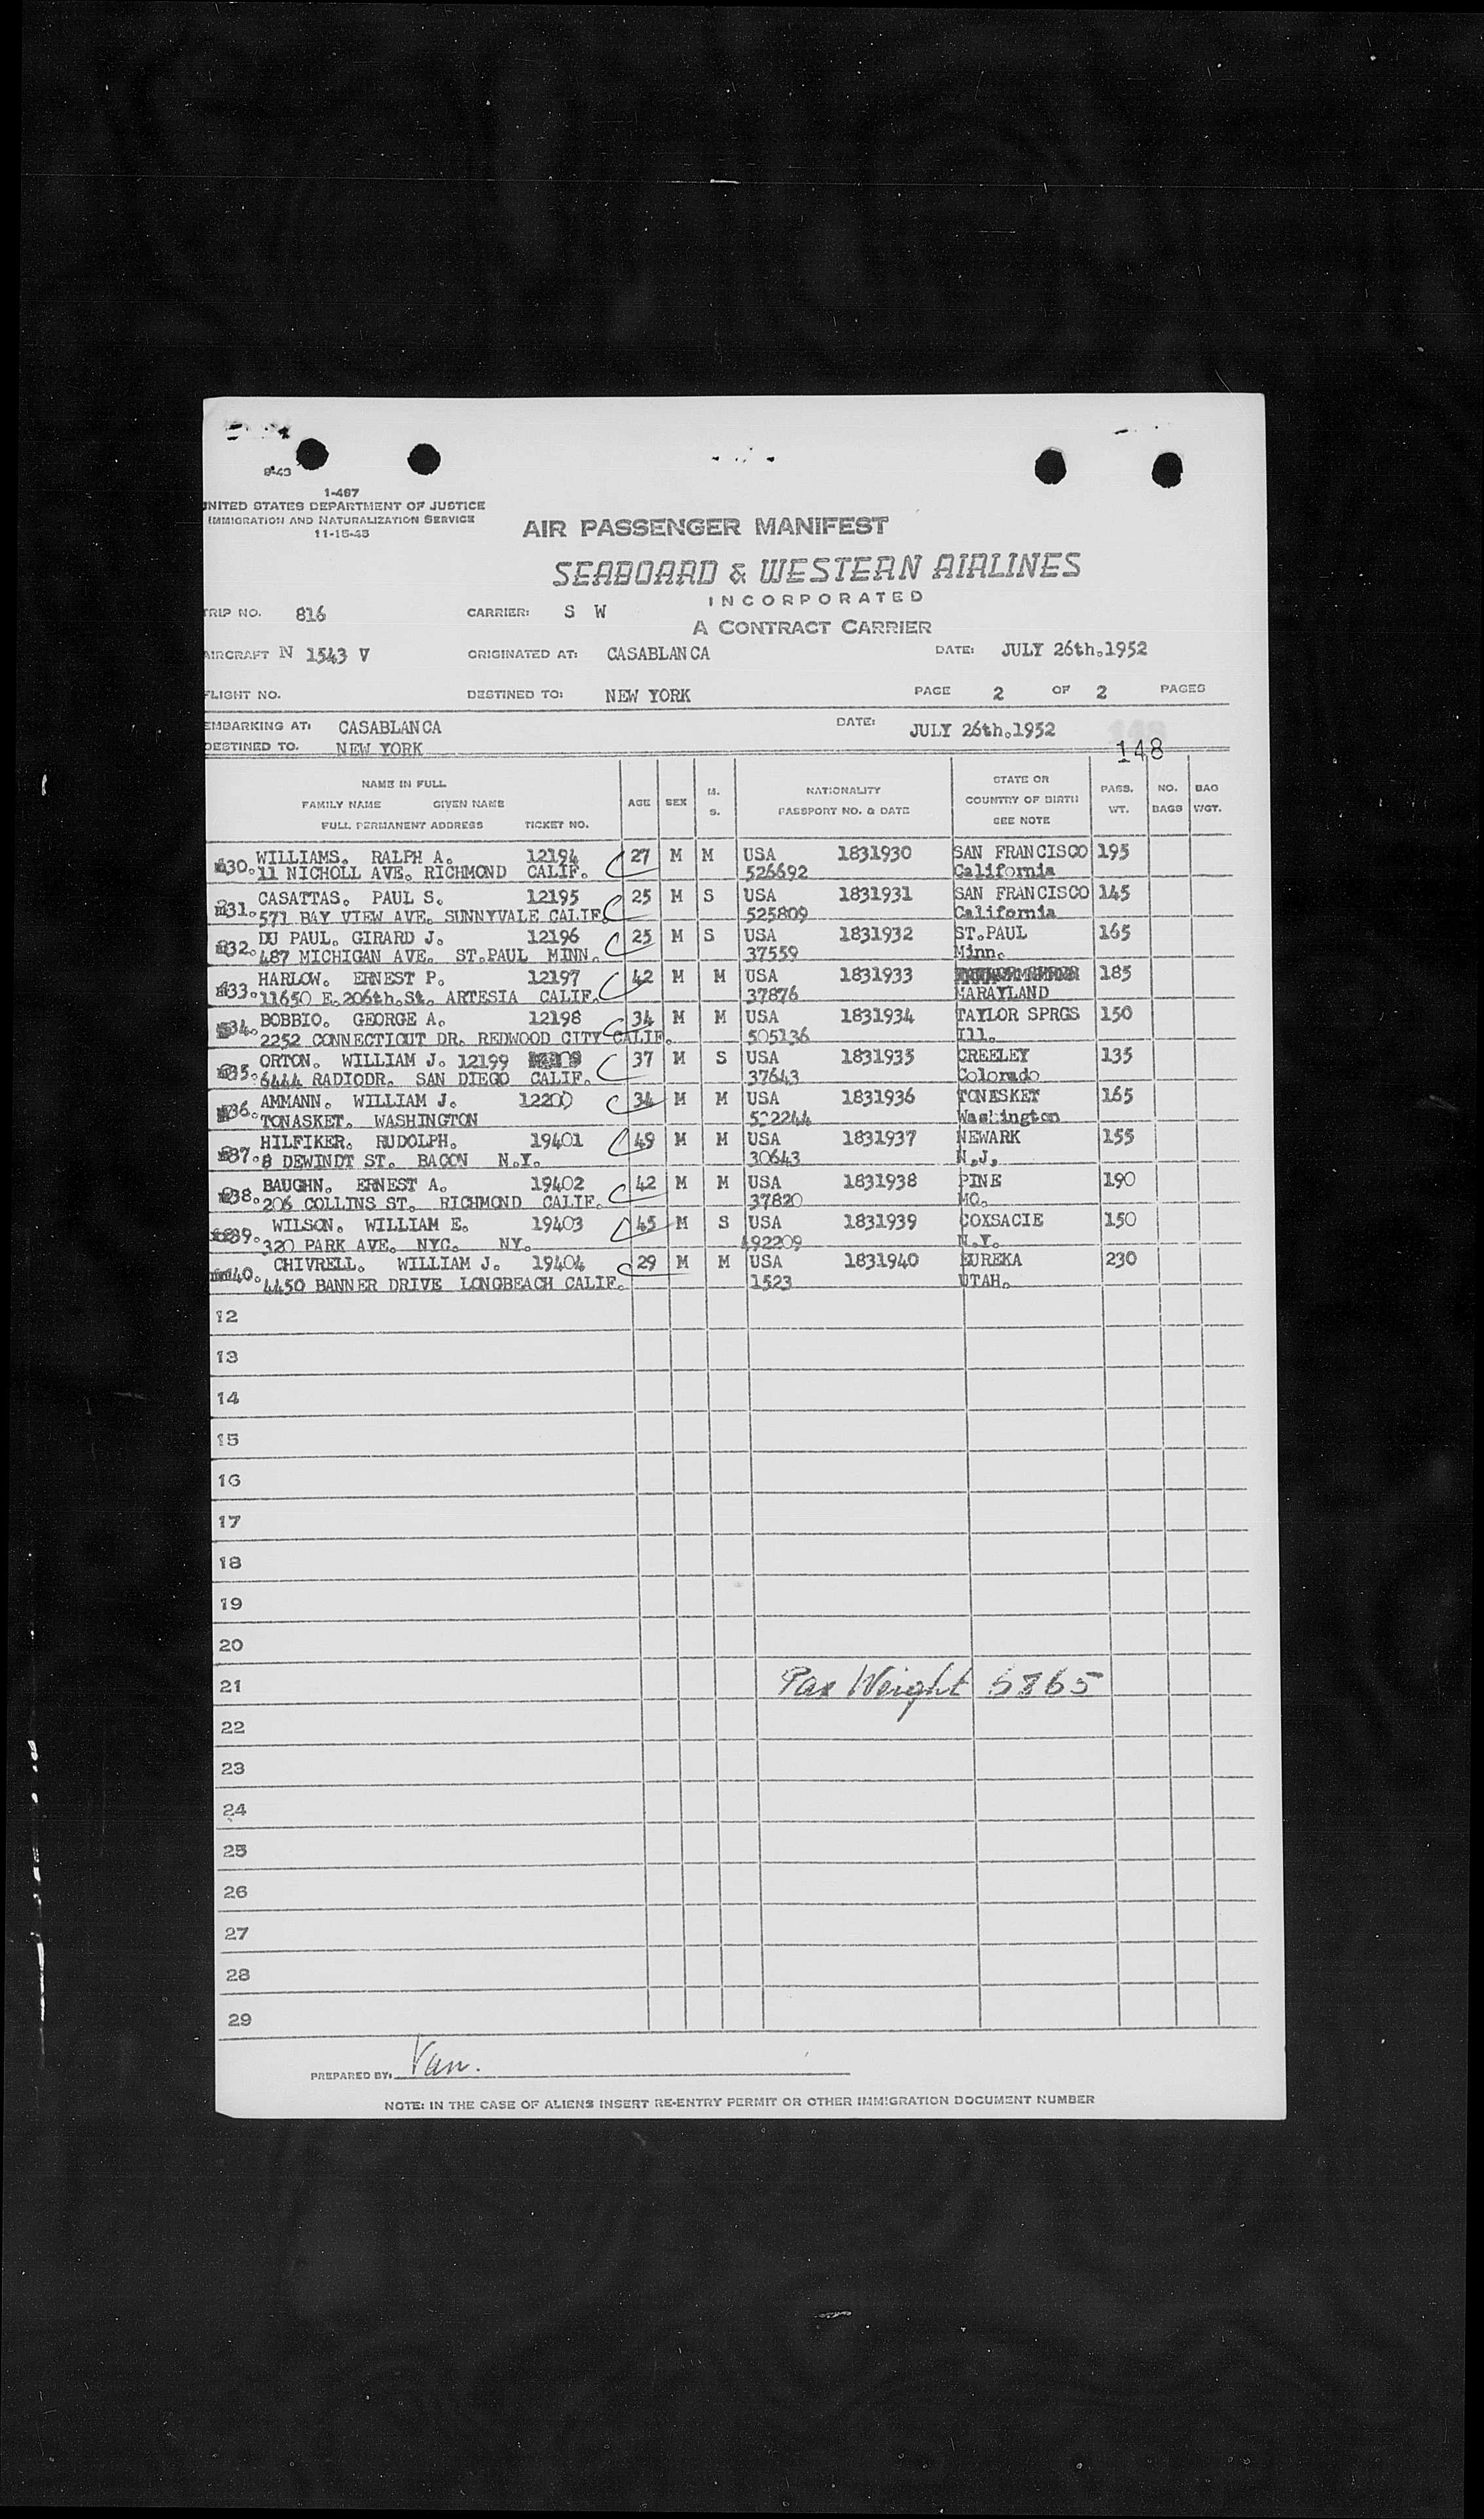 8-43
1-467
UNITED STATES DEPARTMENT OF JUSTICE
IMMIGRATION AND NATURALIZATION SERVICE
11-15-45
AIR PASSENGER MANIFEST
SEABOARD & WESTERN AIRLINES
INCORPORATED
A CONTRACT CARRIER
TRIP NO. 816 CARRIER: S W
AIRCRAFT N 1543 V ORIGINATED AT: CASABLANCA DATE: JULY 26th.1952
FLIGHT NO. DESTINED TO: NEW YORK PAGE 2 OF 2 PAGES
EMBARKING AT: CASABLANCA DATE: JULY 26th.1952
DESTINED TO. NEW YORK 148
NAME IN FULL
FAMILY NAME GIVEN NAME
FULL PERMANENT ADDRESS TICKET NO.
AGE SEX M. S.
NATIONALITY
PASSPORT NO. & DATE
STATE OR
COUNTRY OF BIRTH
SEE NOTE
PASS. WT. NO. BAGS BAG WGT.
30. WILLIAMS. RALPH A. 12194 27 M M USA 1831930 SAN FRANCISCO 195
11 NICHOLL AVE. RICHMOND CALIF. 526692 California
31. CASATTAS. PAUL S. 12195 25 M S USA 1831931 SAN FRANCISCO 145
571 BAY VIEW AVE. SUNNYVALE CALIF. 525809 California
32. DU PAUL. GIRARD J. 12196 25 M S USA 1831932 ST.PAUL 165
487 MICHIGAN AVE. ST.PAUL MINN. 37559 Minn.
33. HARLOW. ERNEST P. 12197 42 M M USA 1831933 185
11650 E.206th.St. ARTESIA CALIF. 37876 MARAYLAND
34. BOBBIO. GEORGE A. 12198 34 M M USA 1831934 TAYLOR SPRGS 150
2252 CONNECTICUT DR. REDWOOD CITY CALIF. 505136 Ill.
35. ORTON. WILLIAM J. 12199 37 M S USA 1831935 CREELEY 135
6444 RADIODR. SAN DIEGO CALIF. 37643 Colorado
36. AMMANN. WILLIAM J. 12200 34 M M USA 1831936 TONASKET 165
TONASKET. WASHINGTON 522244 Washington
37. HILFIKER. RUDOLPH. 19401 49 M M USA 1831937 NEWARK 155
8 DEWINDT ST. BACON N.Y. 30643 N.J.
38. BAUGHN. ERNEST A. 19402 42 M M USA 1831938 PINE 190
206 COLLINS ST. RICHMOND CALIF. 37820 MO.
39. WILSON. WILLIAM E. 19403 45 M S USA 1831939 COXSACIE 150
320 PARK AVE. NYC. NY. 492209 N.Y.
40. CHIVRELL. WILLIAM J. 19404 29 M M USA 1831940 EUREKA 230
4450 BANNER DRIVE LONGBEACH CALIF. 1523 UTAH.
12
13
14
15
16
17
18
19
20
21 Pax Weight 6865
22
23
24
25
26
27
28
29
PREPARED BY: Van.
NOTE: IN THE CASE OF ALIENS INSERT RE-ENTRY PERMIT OR OTHER IMMIGRATION DOCUMENT NUMBER